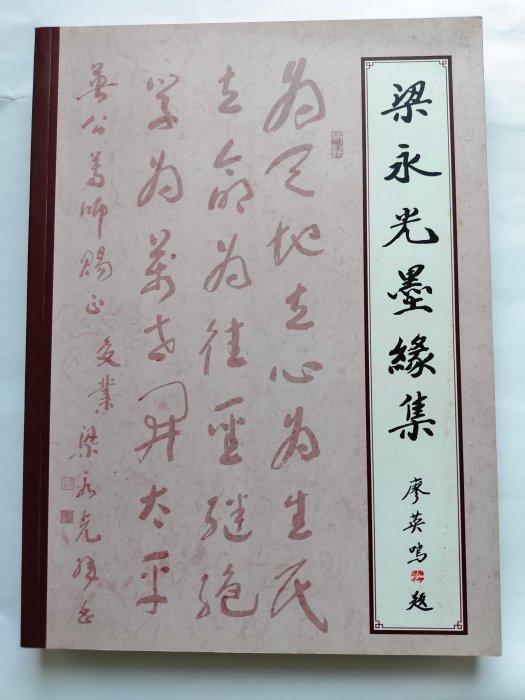 梁永光墨緣集
廖英鳴 題
為天地立心為生民
立命為往聖繼絕
學為萬世開太平
英公尊師賜正 受業 梁永光拜書